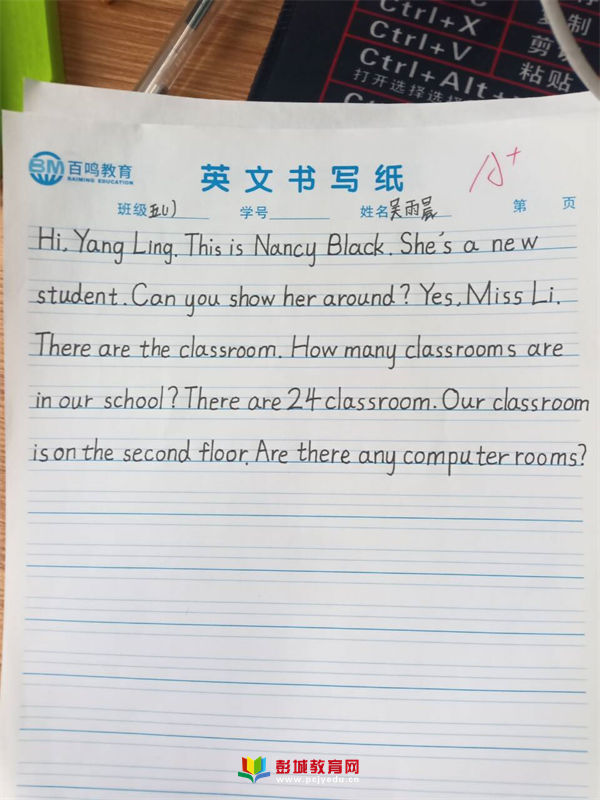 Ctrl+X
复制
Ctrl+V
剪切
Ctrl+Alt+
粘贴
打开选择选择
BM 百鸣教育
BAIMING EDUCATION
英文书写纸
A+
班级 五(1) 学号 姓名 吴雨晨 第 页
Hi, Yang Ling. This is Nancy Black. She's a new
student. Can you show her around? Yes, Miss Li.
There are the classroom. How many classrooms are
in our school? There are 24 classroom. Our classroom
is on the second floor. Are there any computer rooms?
彭城教育网
www.pcjyedu.cn